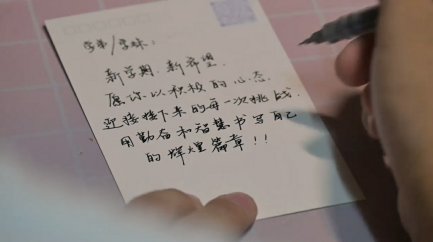 学弟/学妹:
新学期,新希望.
愿你以积极的心态.
迎接接下来的每一次挑战.
用勤奋和智慧书写自己
的辉煌篇章!!